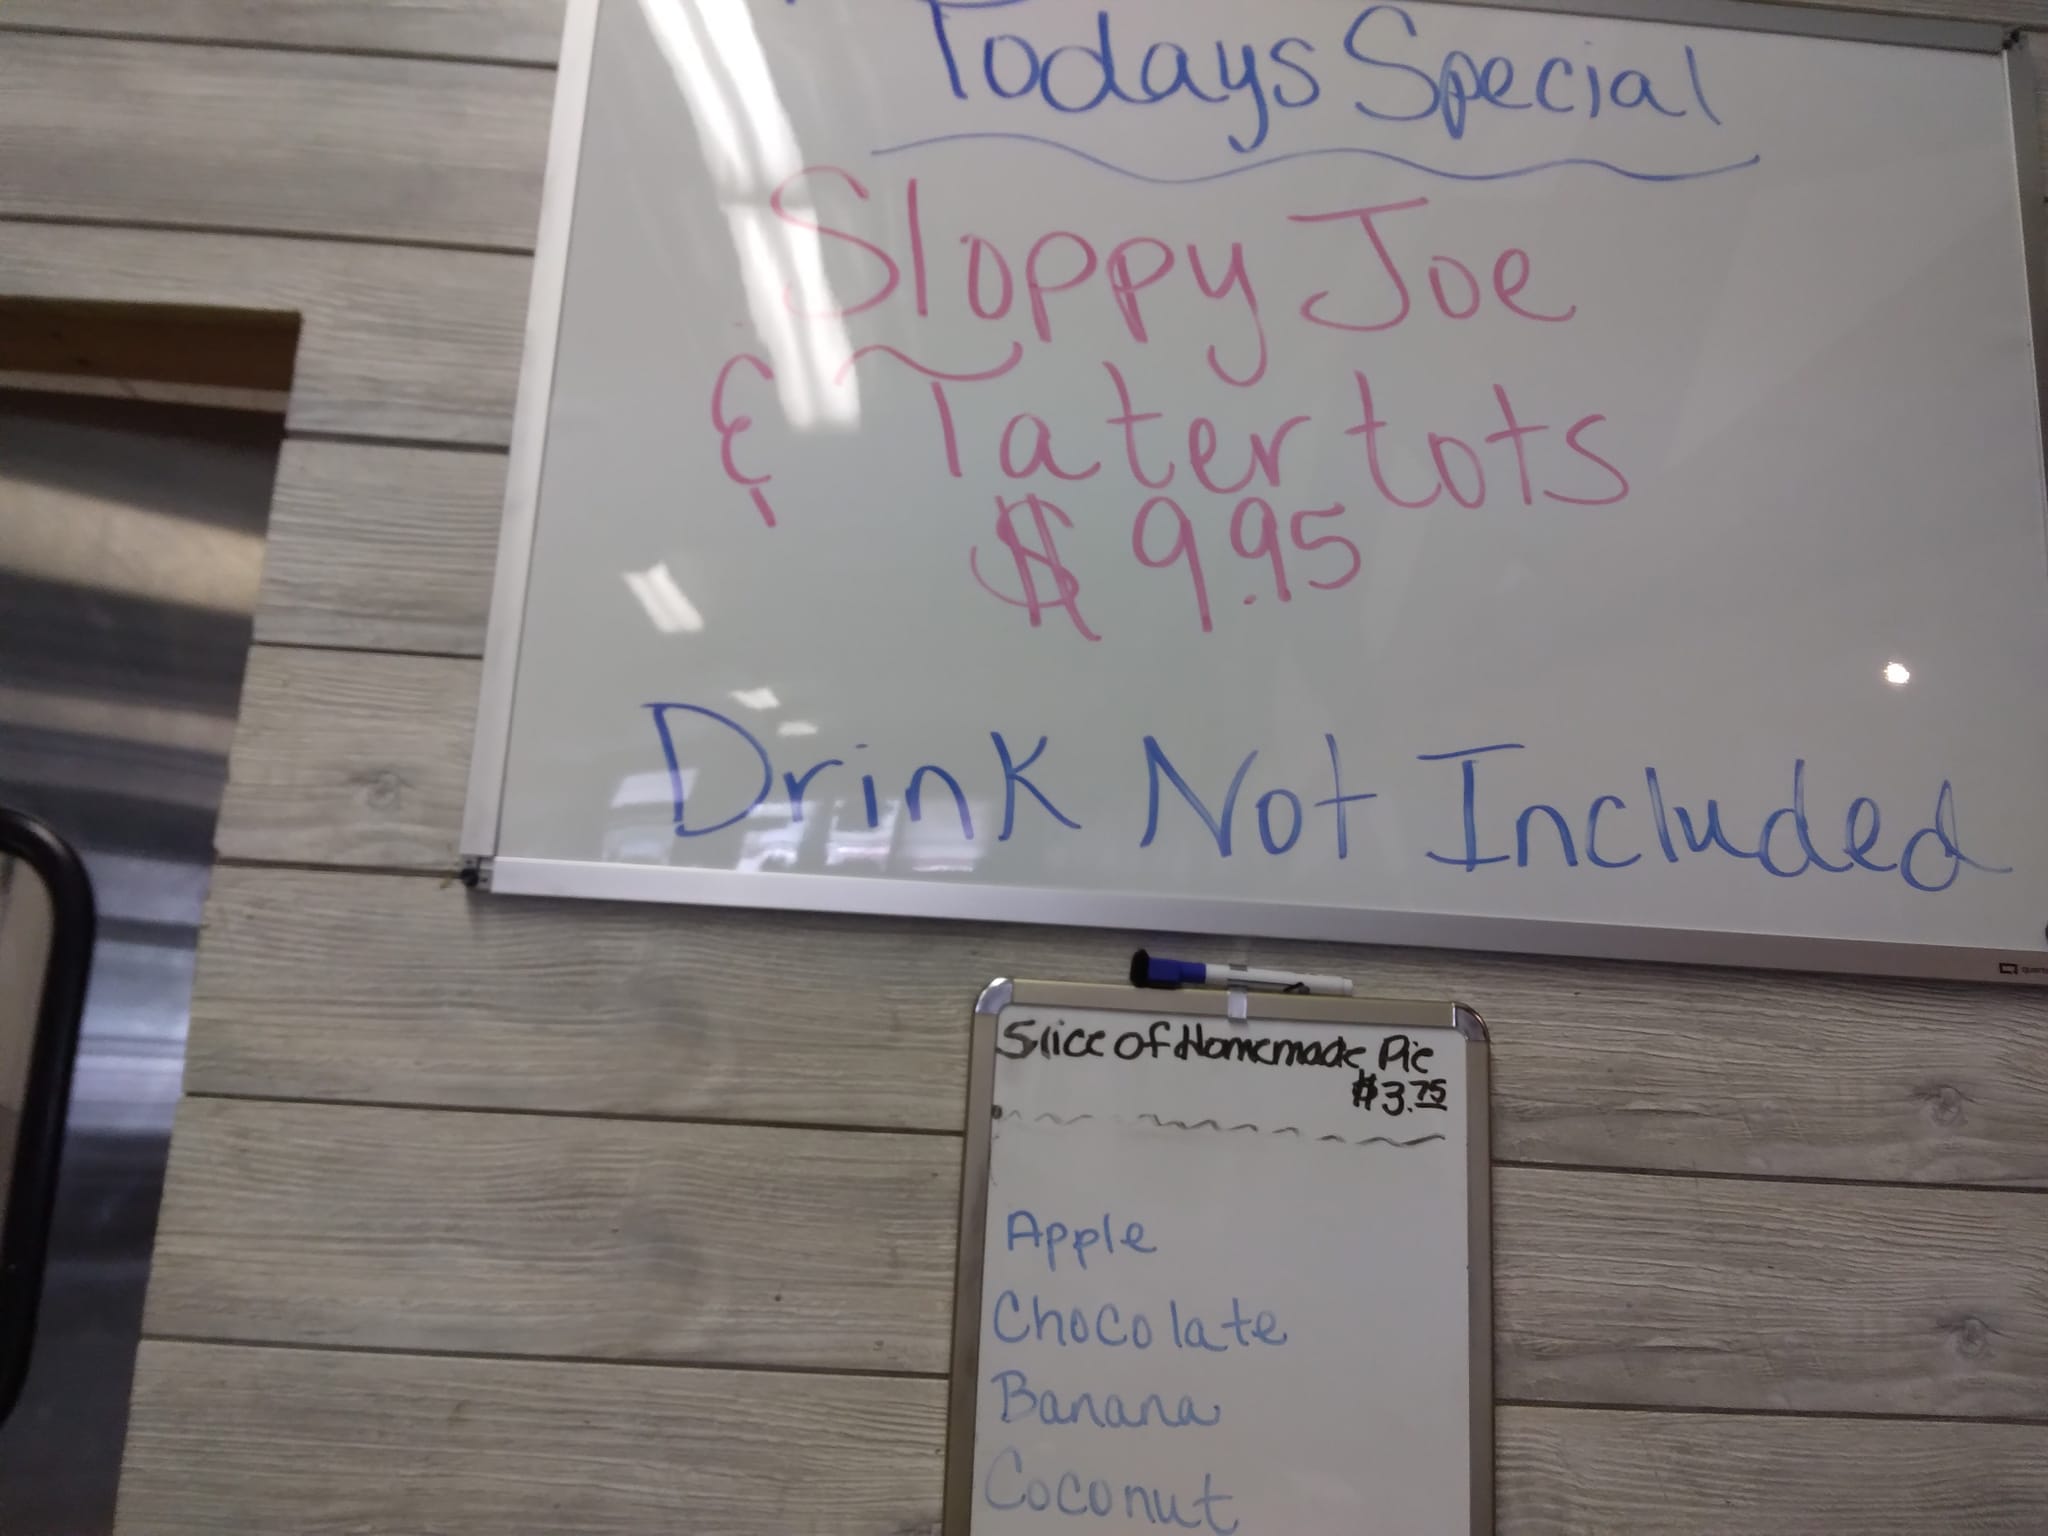 Todays Special
Sloppy Joe
& Tater tots
$9.95
Drink Not Included
Slice of Homemade Pie
$3.75
Apple
Chocolate
Banana
Coconut